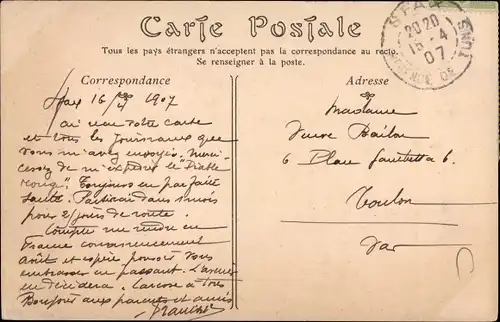 Carte Postale
Tous les pays étrangers n'acceptent pas la correspondance au recto.
Se renseigner à la poste.
Correspondance
Adresse
SFAX
20 20
16-4
07
TUNIS
Sfax 16/4 1907
ai eu votre carte
et tous les Journaux que
vous m'avez envoyés.
de m'expédier le "Diable
rouge". Toujours en parfaite
santé. Partirai dans 1 mois
pour 21 jours de route.
Compte me rendre en
France
Août et espère pouvoir vous
embrasser en passant. L'avenir
en décidera.
Bonjour aux parents et amis
Madame
Veuve
6 Place Gambetta 6.
Toulon
Var